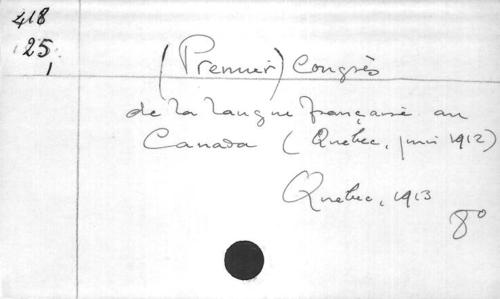 418
25,
(Premier) Congrès
de la langue française au
Canada (Quebec, juin 1912)
Quebec, 1913
8°